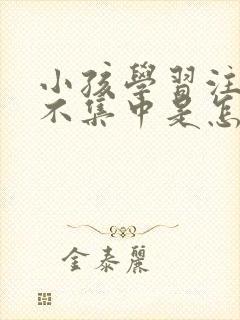 小孩學習注
不集中是怎
金泰麗